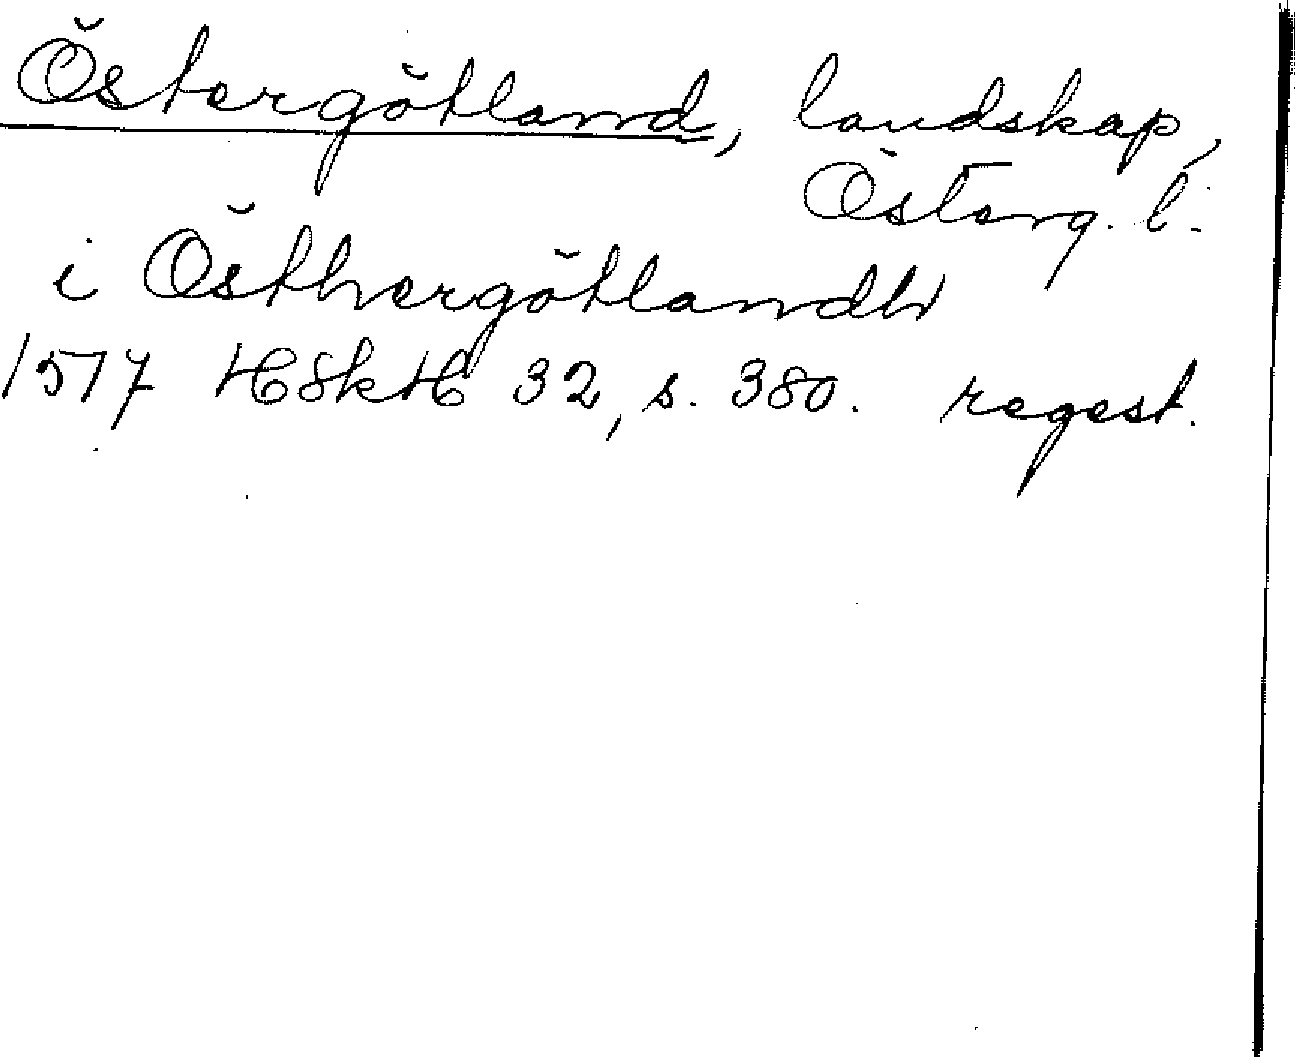 Östergötland, landskap,
Österg. l.
i Östhergötlandh
1577 HSkH 32, s. 380. regest.